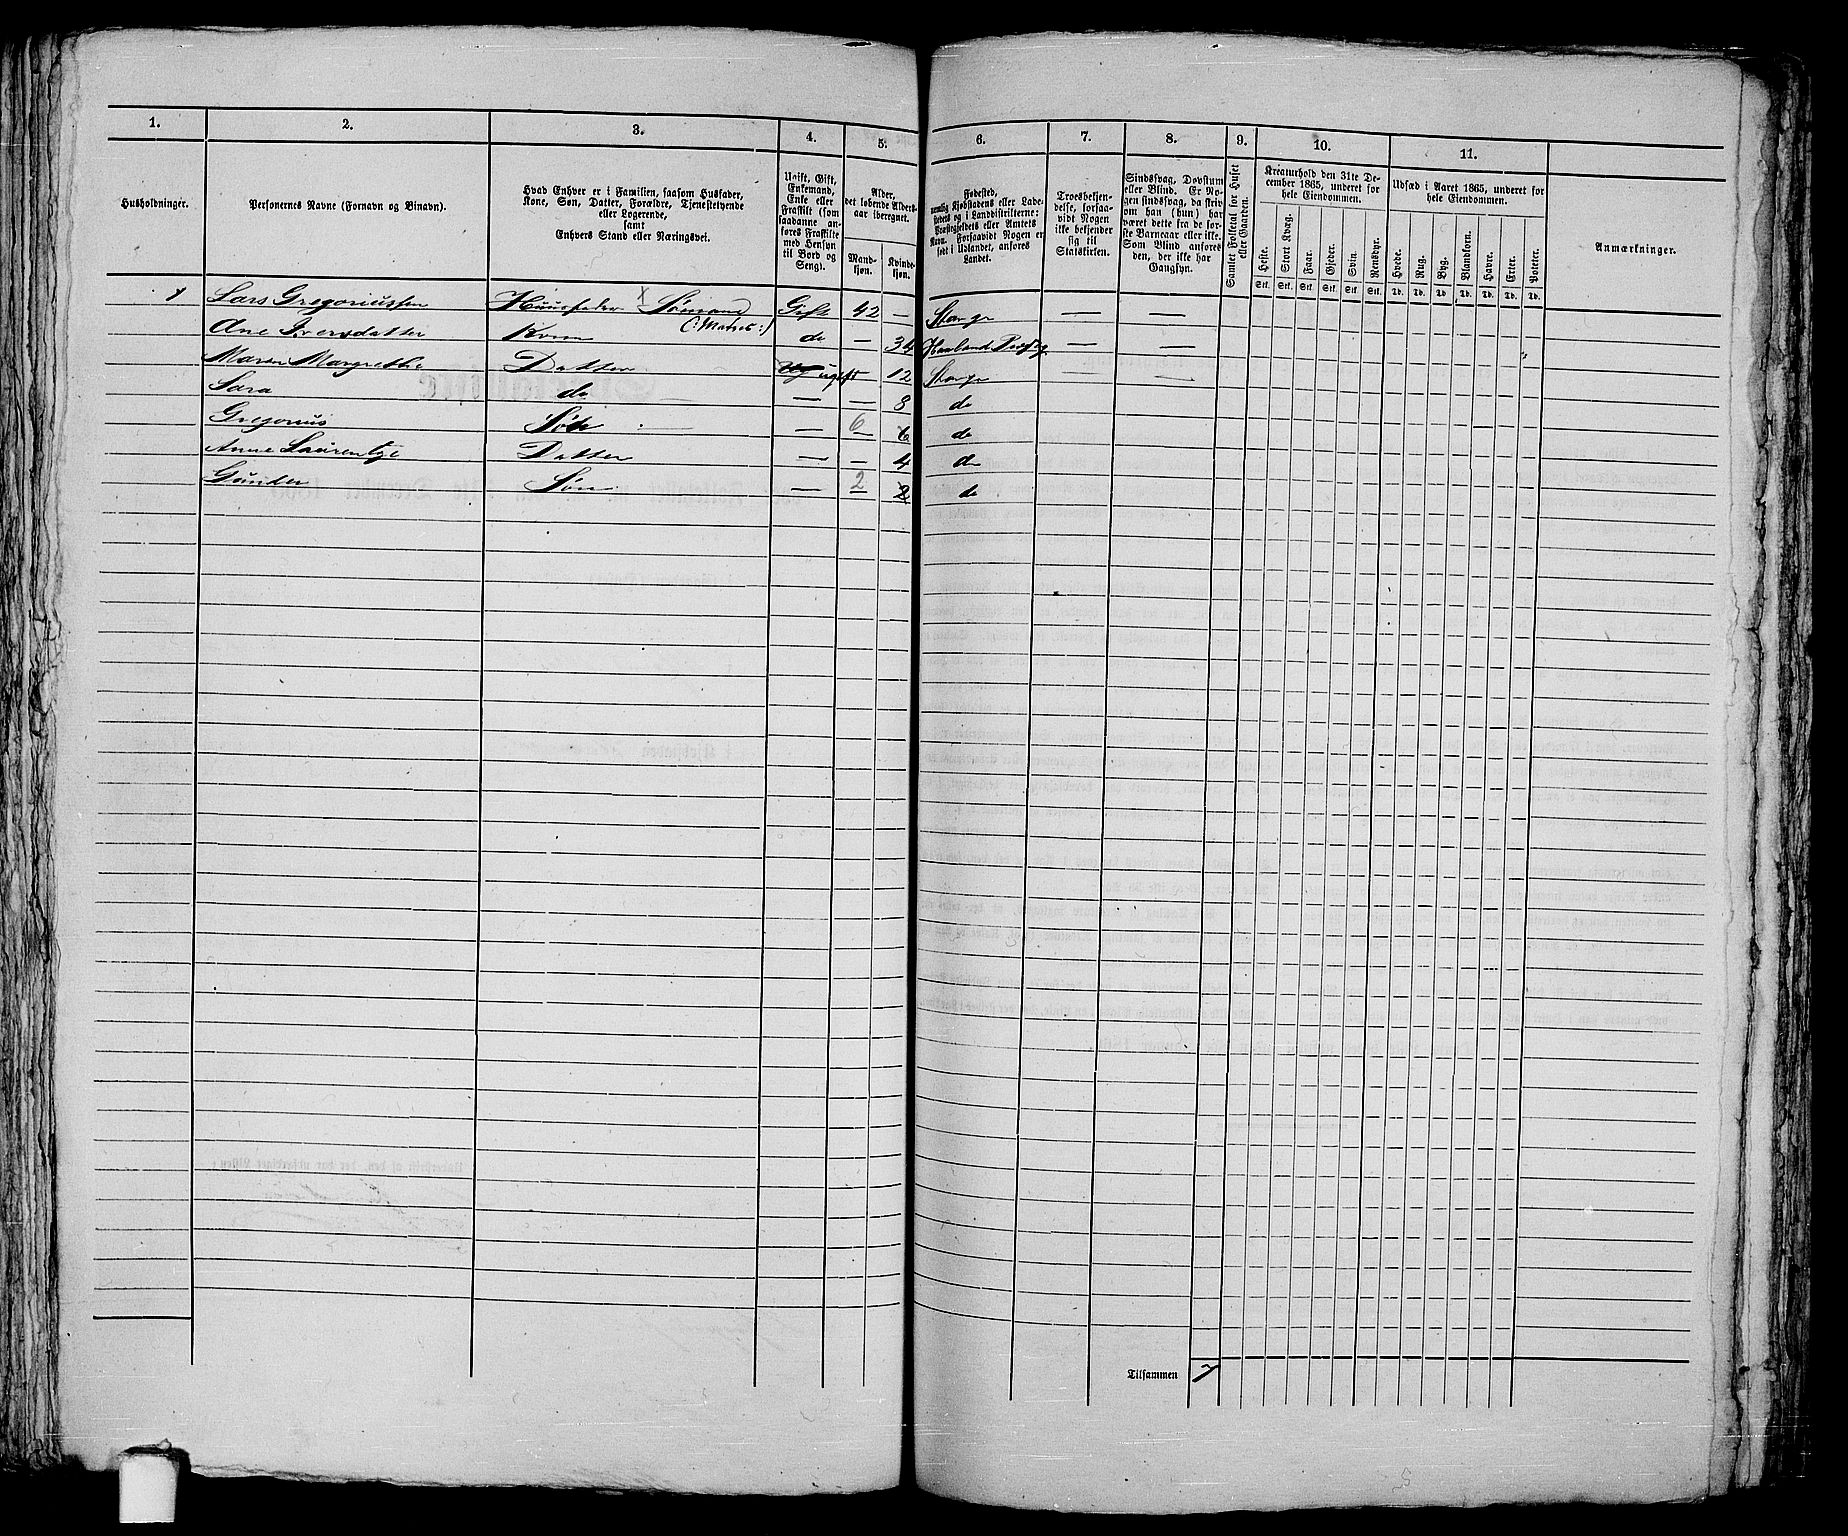 1. 2. 3. 4. 5. 6. 7. 8. 9. 10. 11.
Husholdninger.
Personernes Navne (Fornavn og Binavn).
Hvad Enhver er i Familien, saasom Husfader,
Kone, Søn, Datter, Forældre, Tjenestetyende
eller Logerende,
samt
Enhvers Stand eller Næringsvei.
Ugift, Gift,
Enkemand,
Enke eller
Fraskilt (som
saadanne an-
føres Fraskilte
med Hensyn
til Bord og
Seng).
Alder,
det løbende Alders-
aar iberegnet.
Mand-
kjøn.
Kvinde-
kjøn.
Fødested,
nemlig Kjøbstadens eller Lade-
stedets og i Landdistrikterne:
Præstegjeldets eller Amtets
Navn. Forsaavidt Nogen er
født i Udlandet, anføres
Landet.
Troesbekjen-
delse, forsaa-
vidt Nogen
ikke bekjender
sig til
Statskirken.
Sindssvag, Døvstum
eller Blind. Er No-
gen sindssvag, da skriv
om han (hun) har
været dette fra de før-
ste Barneaar eller ikke.
Som Blind anføres
den, der ikke har
Gangsyn.
Samlet Folketal for Huset
eller Gaarden.
Kreaturhold den 31te De-
cember 1865, underet for
hele Eiendommen.
Heste. Stort Kvæg. Faar. Gjeder. Svin. Rensdyr.
Stk. Stk. Stk. Stk. Stk. Stk.
Udsæd i Aaret 1865, underet for
hele Eiendommen.
Hvede. Rug. Byg. Blandkorn. Havre. Erter. Poteter.
Td. Td. Td. Td. Td. Td. Td.
Anmærkninger.
Lars Gregoriussen Huusfader x Sømand Gift 42 —
(: Matros :)
Ane Iversdatter Kone do — 34
Maren Margrethe Datter ugift — 12 — —
Sara do — — 8 do
Gregorius Søn — 6 6 do
Anne Laurentze Datter — — 4 do
Gunder Søn — 2 2 do
Tilsammen 7